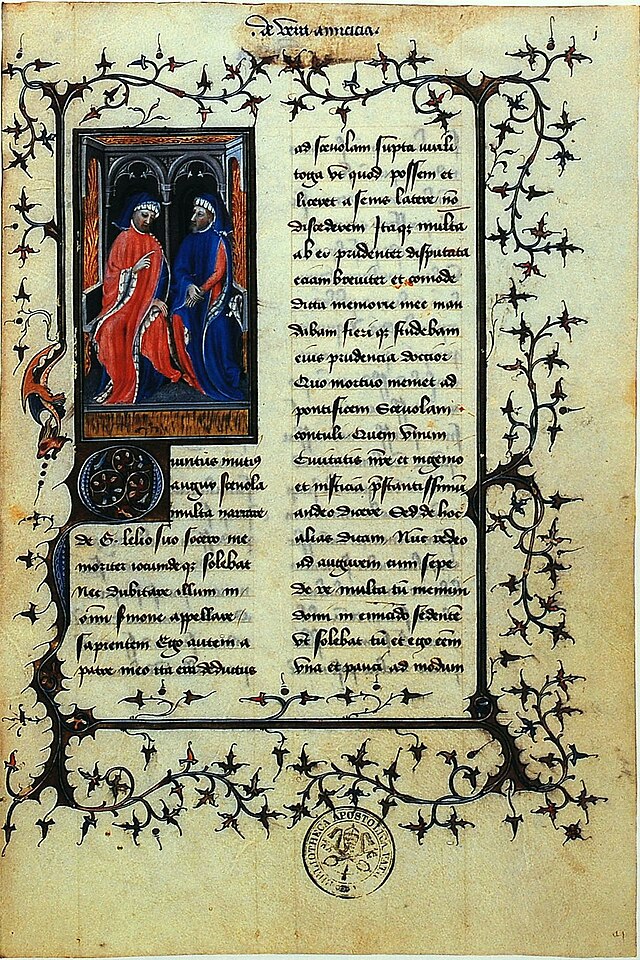 de vera amicicia.
Quintus mutius
augur scevola
multa narrare
de G. lelio suo socero me
moriter iocundeqꝫ solebat
nec dubitare illum in
omni s̾mone appellare
sapientem Ego autem a
patre meo ita erā deductus
ad scevolam supta virili
toga vt quod possem et
liceret a senis latere nō
discederem Itaqꝫ multa
ab eo prudenter disputata
eciam breviter et comode
dicta memorie mee man
dabam fieri qꝫ studebam
eius prudencia doctior
Quo mortuo memet ad
pontificem Scevolam
contuli Quem vnum
Civitatis nr̄e et ingenio
et iusticia p̄stantissimū
audeo dicere Sed de hoc
alias dicam Nūc redeo
ad augurem cum sepe
de re multa tū memini
domi in emiciclo sedentē
vt solebat cū et ego eēm
vna et pauci ad modum
BIBLIOTHECA APOSTOLICA VATICANA